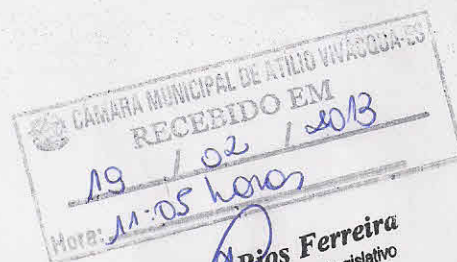 CÂMARA MUNICIPAL DE ATILIO VIVACQUA-ES
RECEBIDO EM
19 / 02 / 2013
Hora: 11:05 horas
Rios Ferreira
islativo